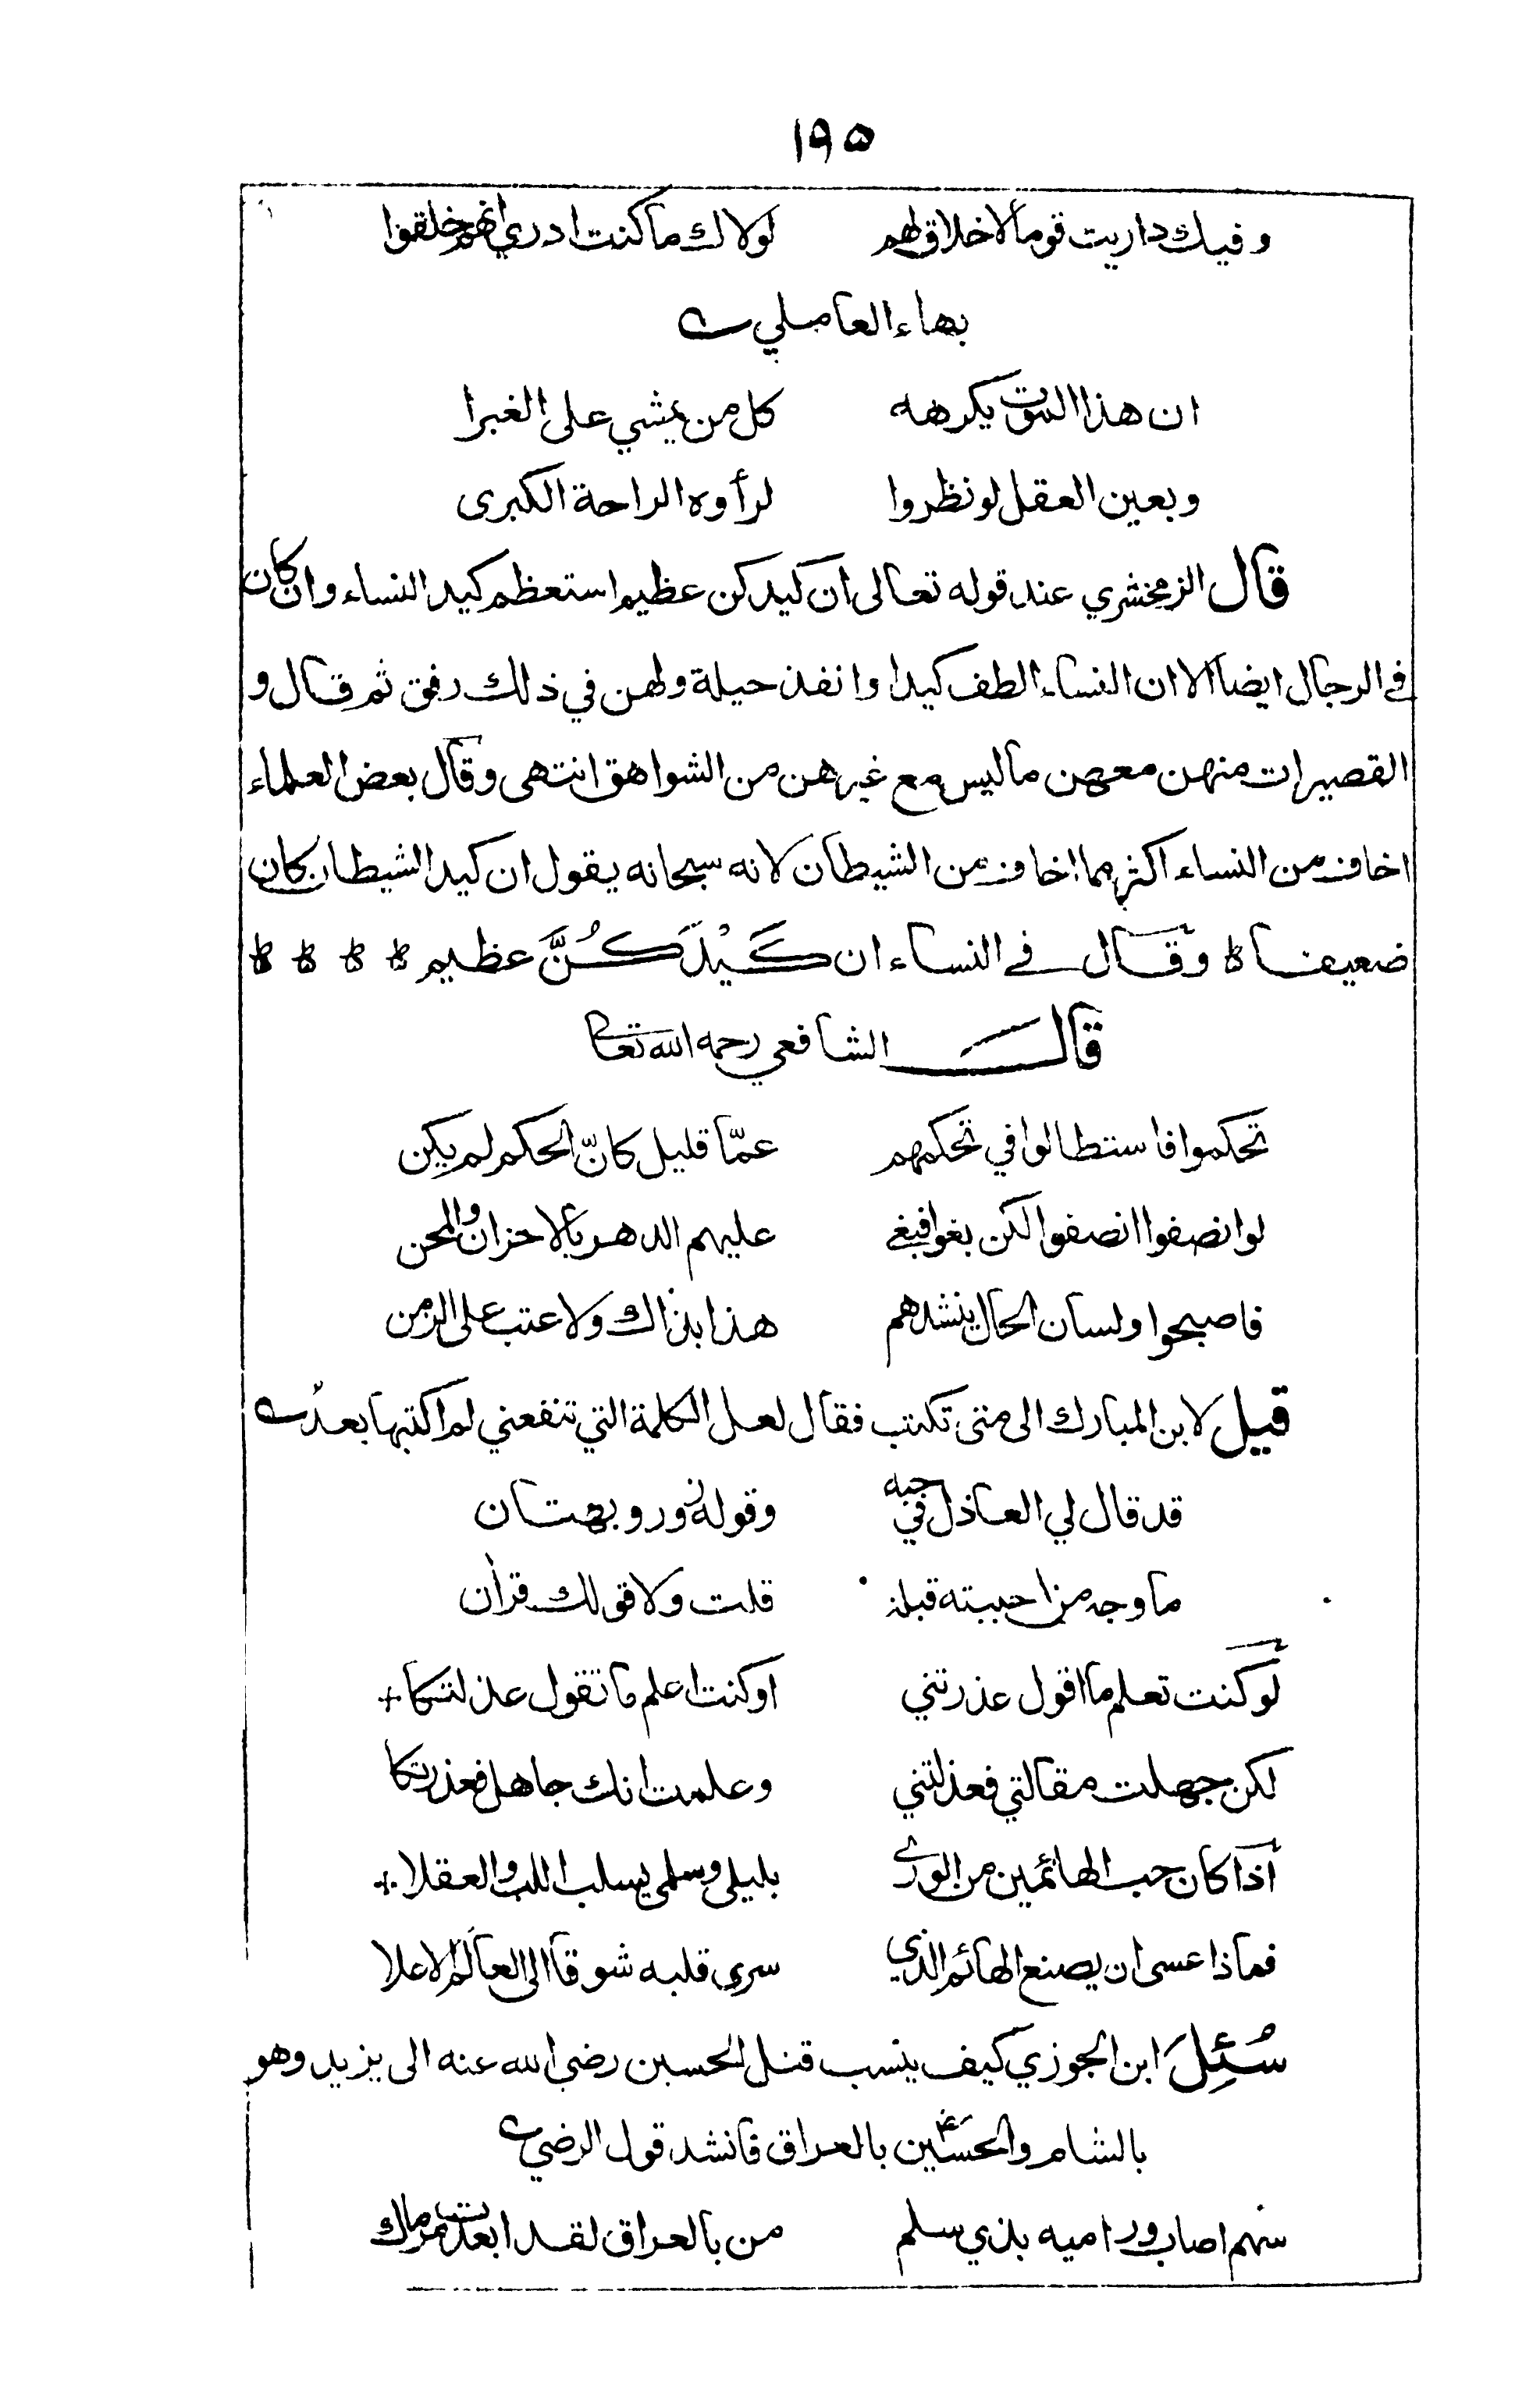 ١٩٥
وفيك داريت قوما لا خلاق لهم لولاك ما كنت ادري انهم خلقوا
بهاء العاملي
ان هذا الموت يكرهه كل من يمشي على الغبرا
وبعين العقل لو نظروا لرأوه الراحة الكبرى
قال الزمخشري عند قوله تعالى ان كيدكن عظيم استعظم كيد النساء وان كان
في الرجال ايضا الا ان النساء الطف كيدا وانفذ حيلة ولهن في ذلك رفق ثم قال و
القصيرات منهن معهن ما ليس مع غيرهن من الشواهق انتهى وقال بعض العلماء
اخاف من النساء اكثر مما اخاف من الشيطان لانه سبحانه يقول ان كيد الشيطان كان
ضعيفا ه وقال في النساء ان كَيْدَكُنَّ عظيم ه ه ه ه
قال الشافعي رحمه الله تعا
تحكموا فاستطالوا في تحكمهم عمّا قليل كانّ الحكم لم يكن
لو انصفوا انصفوا لكن بغوا فبغى عليهم الدهر بالاحزان والمحن
فاصبحوا ولسان الحال ينشدهم هذا بذاك ولا عتب على الزمن
قيل لابن المبارك الى متى تكتب فقال لعل الكلمة التي تنفعني لم اكتبها بعد
قد قال لي العاذل في حبه وقوله زور وبهتان
ما وجه من احببته قبلة قلت ولا قولك قرآن
لو كنت تعلم ما اقول عذرتني او كنت اعلم ما تقول عذلتكا
لكن جهلت مقالتي فعذلتني وعلمت انك جاهل فعذرتكا
اذا كان حب الهائمين من الورى بليلى وسلمى يسلب اللب والعقلا
فماذا عسى ان يصنع الهائم الذي سرى قلبه شوقا الى العالم الاعلا
سُئِلَ ابن الجوزي كيف ينسب قتل الحسين رضي الله عنه الى يزيد وهو
بالشام والحسين بالعراق فانشد قول الرضي
سهم اصاب وراميه بذي سلم من بالعراق لقد ابعدت مرماك